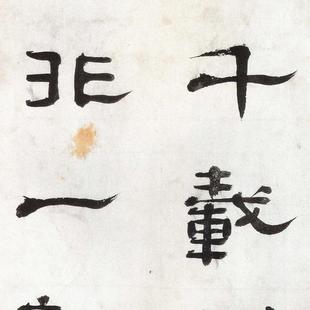 千載
非一